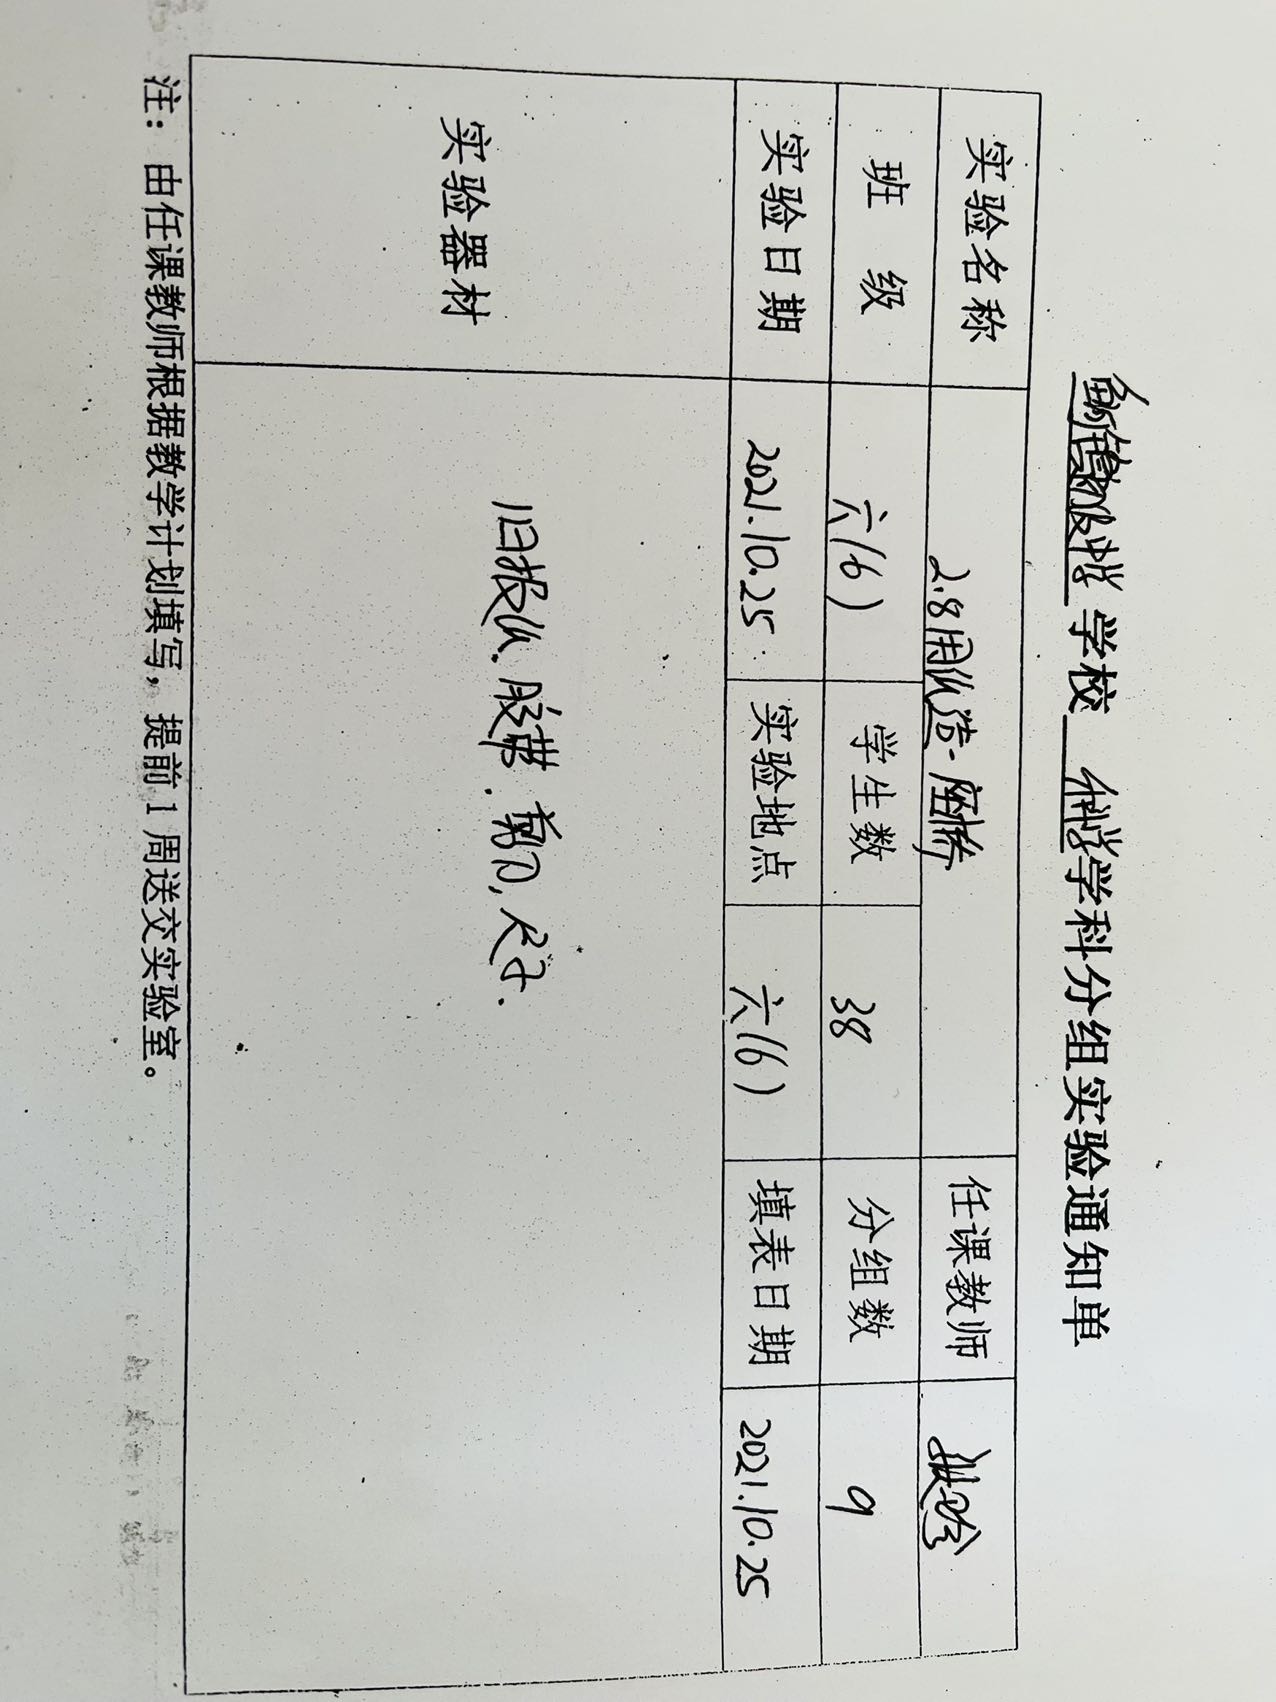 学校 科学学科分组实验通知单
实验名称 2.8用纸造一座桥 任课教师
班 级 六(6) 学生数 38 分组数 9
实验日期 2021.10.25 实验地点 六(6) 填表日期 2021.10.25
实验器材 旧报纸.胶带.剪刀,尺子.
注：由任课教师根据教学计划填写，提前1周送交实验室。